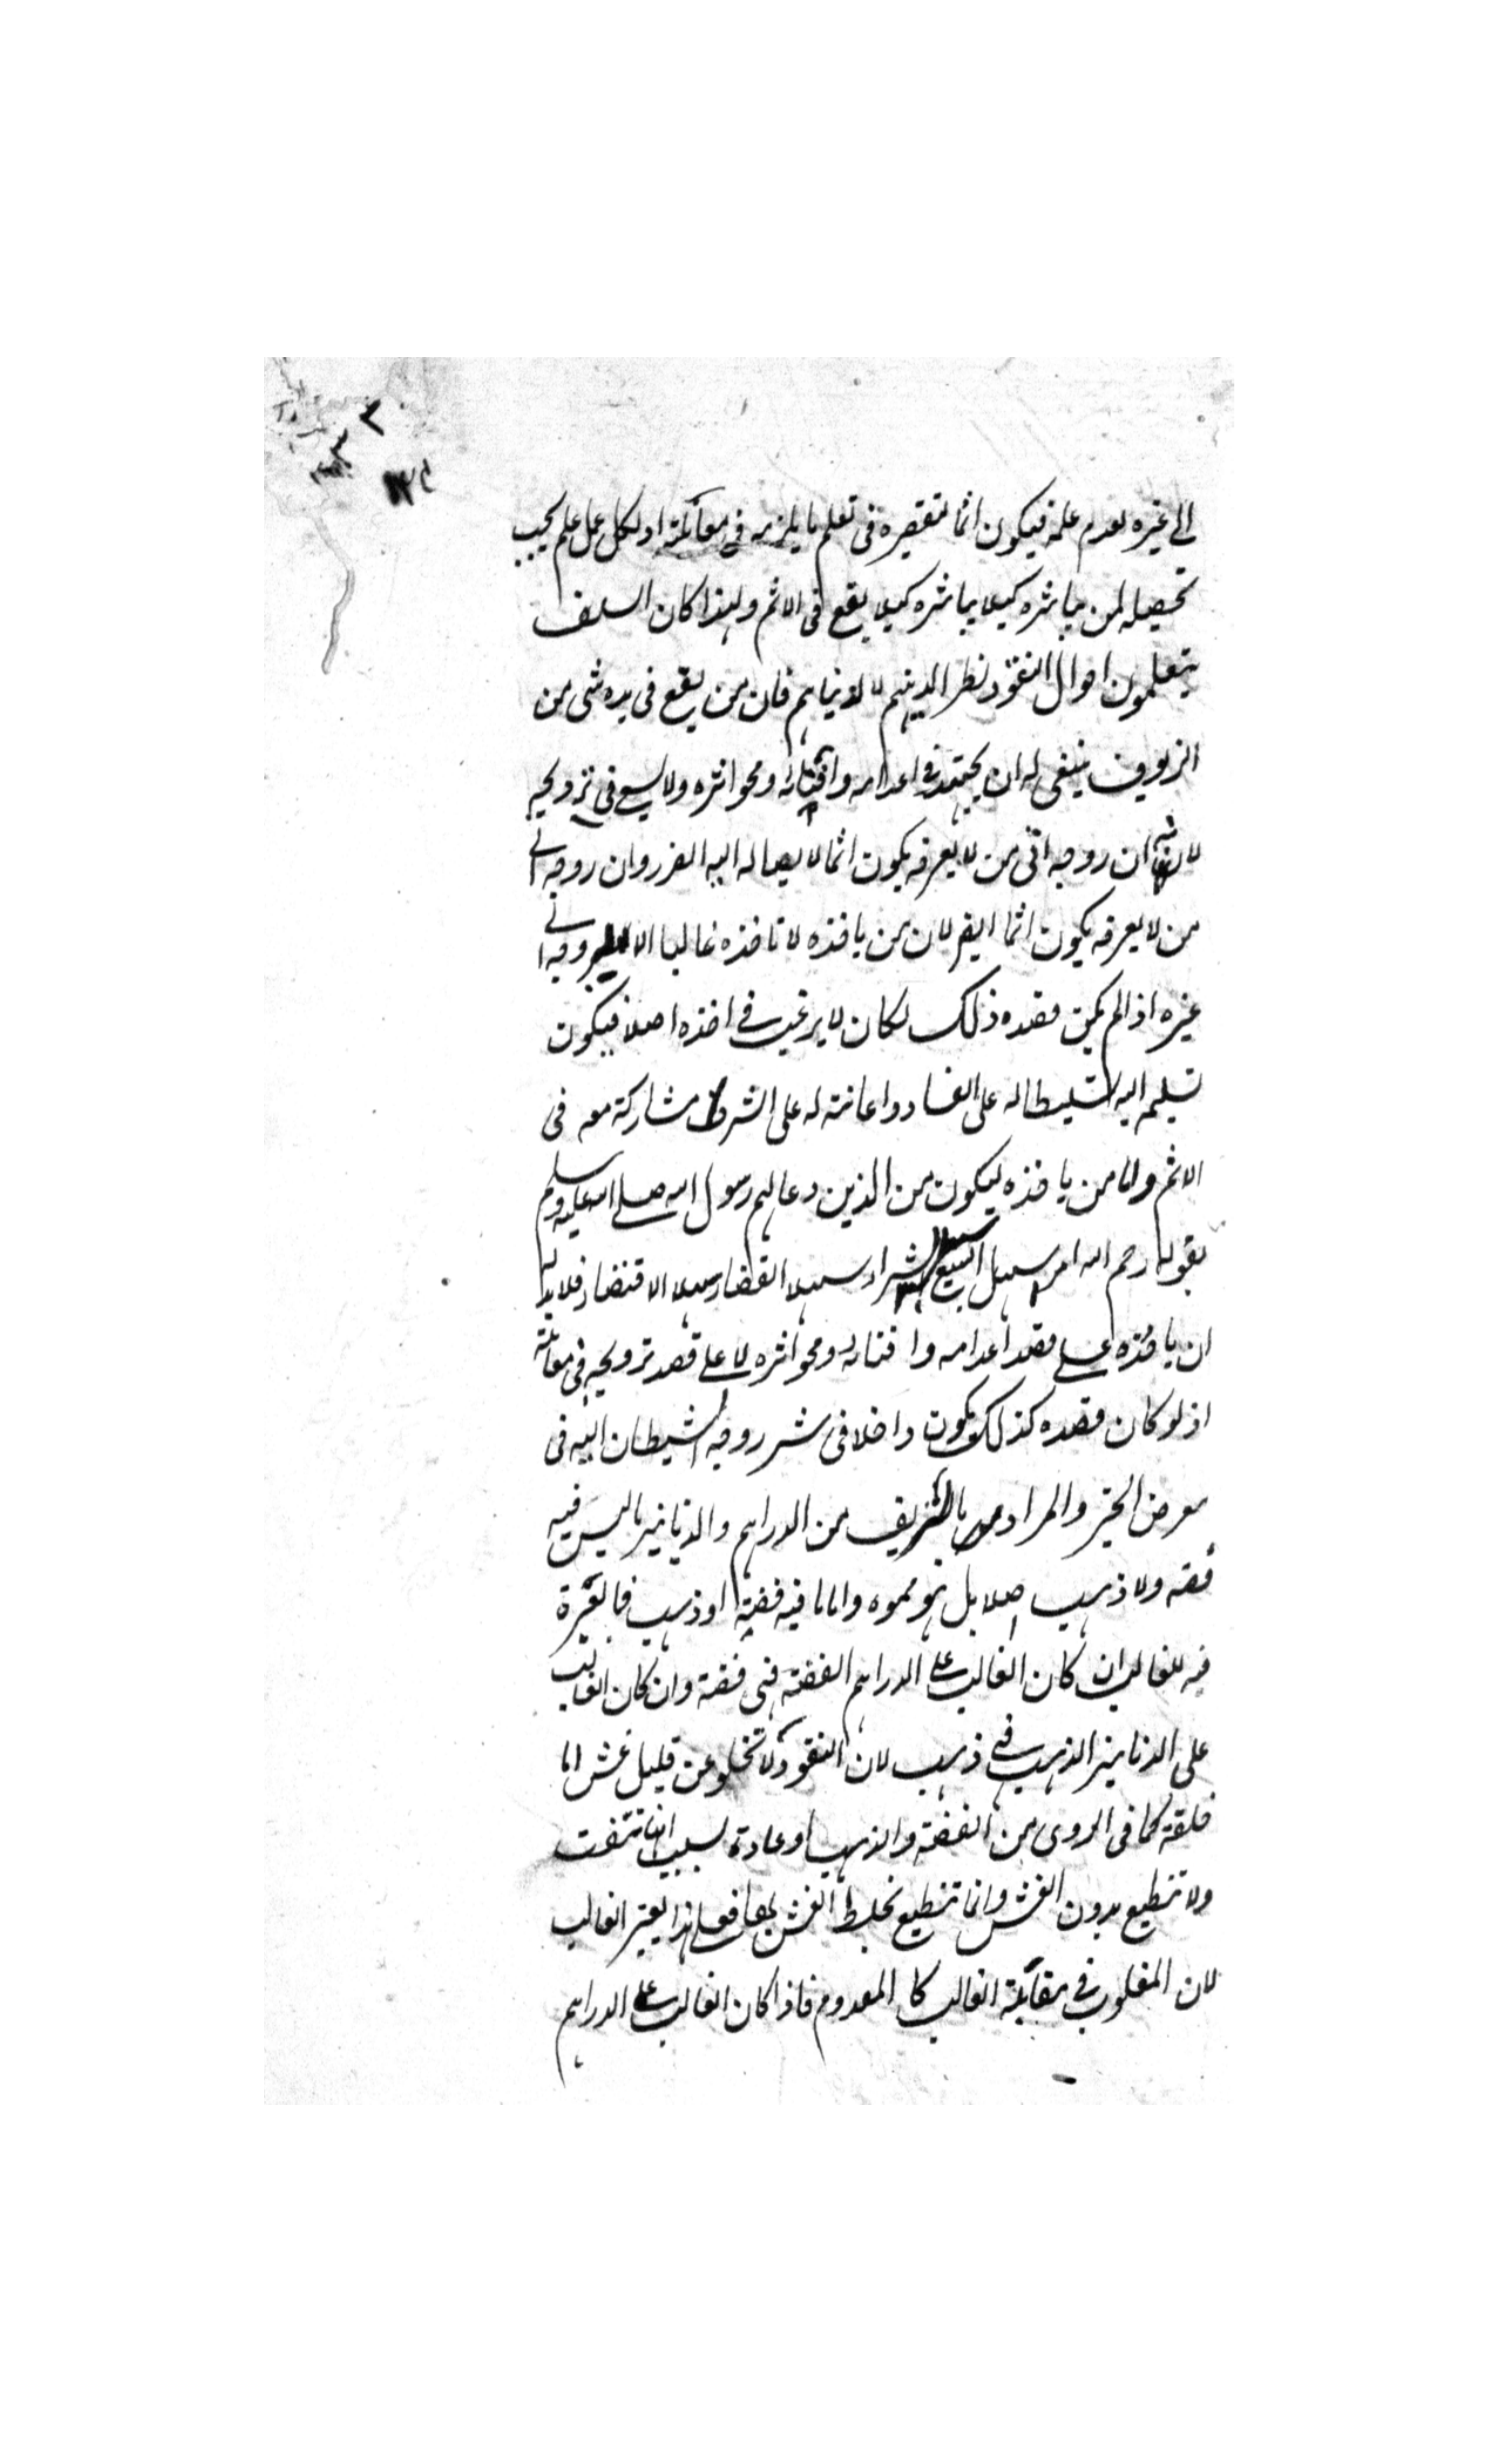 ٣
٣
١٣٤
الى غيره لعدم علمه فيكون اثما لتقصيره فى تعلم ما يلزمه فى معاملته اذ لكل عمل علم يجب
تحصيله لمن يباشره كيلا يباشره كيلا يقع فى الاثم ولهذا كان السلف
يتعلمون احوال النقود نظرا لدينهم لا لدنياهم فان من يقع فى يده شى من
الزيوف ينبغى له ان يجتهد فى اعدامه وافنائه ومحو اثره ولا يسع فى ترويجه
لانه ان روجه الى من لا يعرفه يكون اثما لايصاله اليه الضرر وان روجه الى
من لا يعرفه يكون اثما ايضا لان من ياخذه لا تاخذه غالبا الا ليروجه الى
غيره اذ لم يكن قصده ذلك لكان لا يرغب فى اخذه اصلا فيكون
تسليمه اليه تسليطا له على الفساد واعانته له على الشر مشاركة معه فى
الاثم واما من ياخذه ليكون من الذين دعا لهم رسول الله صلى الله عليه وسلم
بقوله رحم الله امرا سهيل البيع سهيل الشراء سهيل القضاء سهيل الاقتضاء فلا بد له
ان ياخذه على قصد اعدامه وافنائه ومحو اثره لا على قصد ترويجه فى معاملته
اذ لو كان قصده كذلك يكون داخلا فى شر روجه الشيطان اليه فى
معرض الخير والمراد بالزيف من الدراهم والدنانير ما ليس فيه
فضة ولا ذهب اصلا بل هو مموه واما ما فيه فضة او ذهب فالعبرة
فيه للغالب ان كان الغالب على الدراهم الفضة فهى فضة وان كان الغالب
على الدنانير الذهب فهى ذهب لان النقود لا تخلو عن قليل غش اما
خلقة كما فى الردى من الفضة والذهب او عادة بسبب انها تتفتت
ولا تنطبع بدون الغش وانما تنطبع بخلط الغش بها فعلى هذا يعتبر الغالب
لان المغلوب فى مقابلة الغالب كا المعدوم فاذا كان الغالب على الدراهم